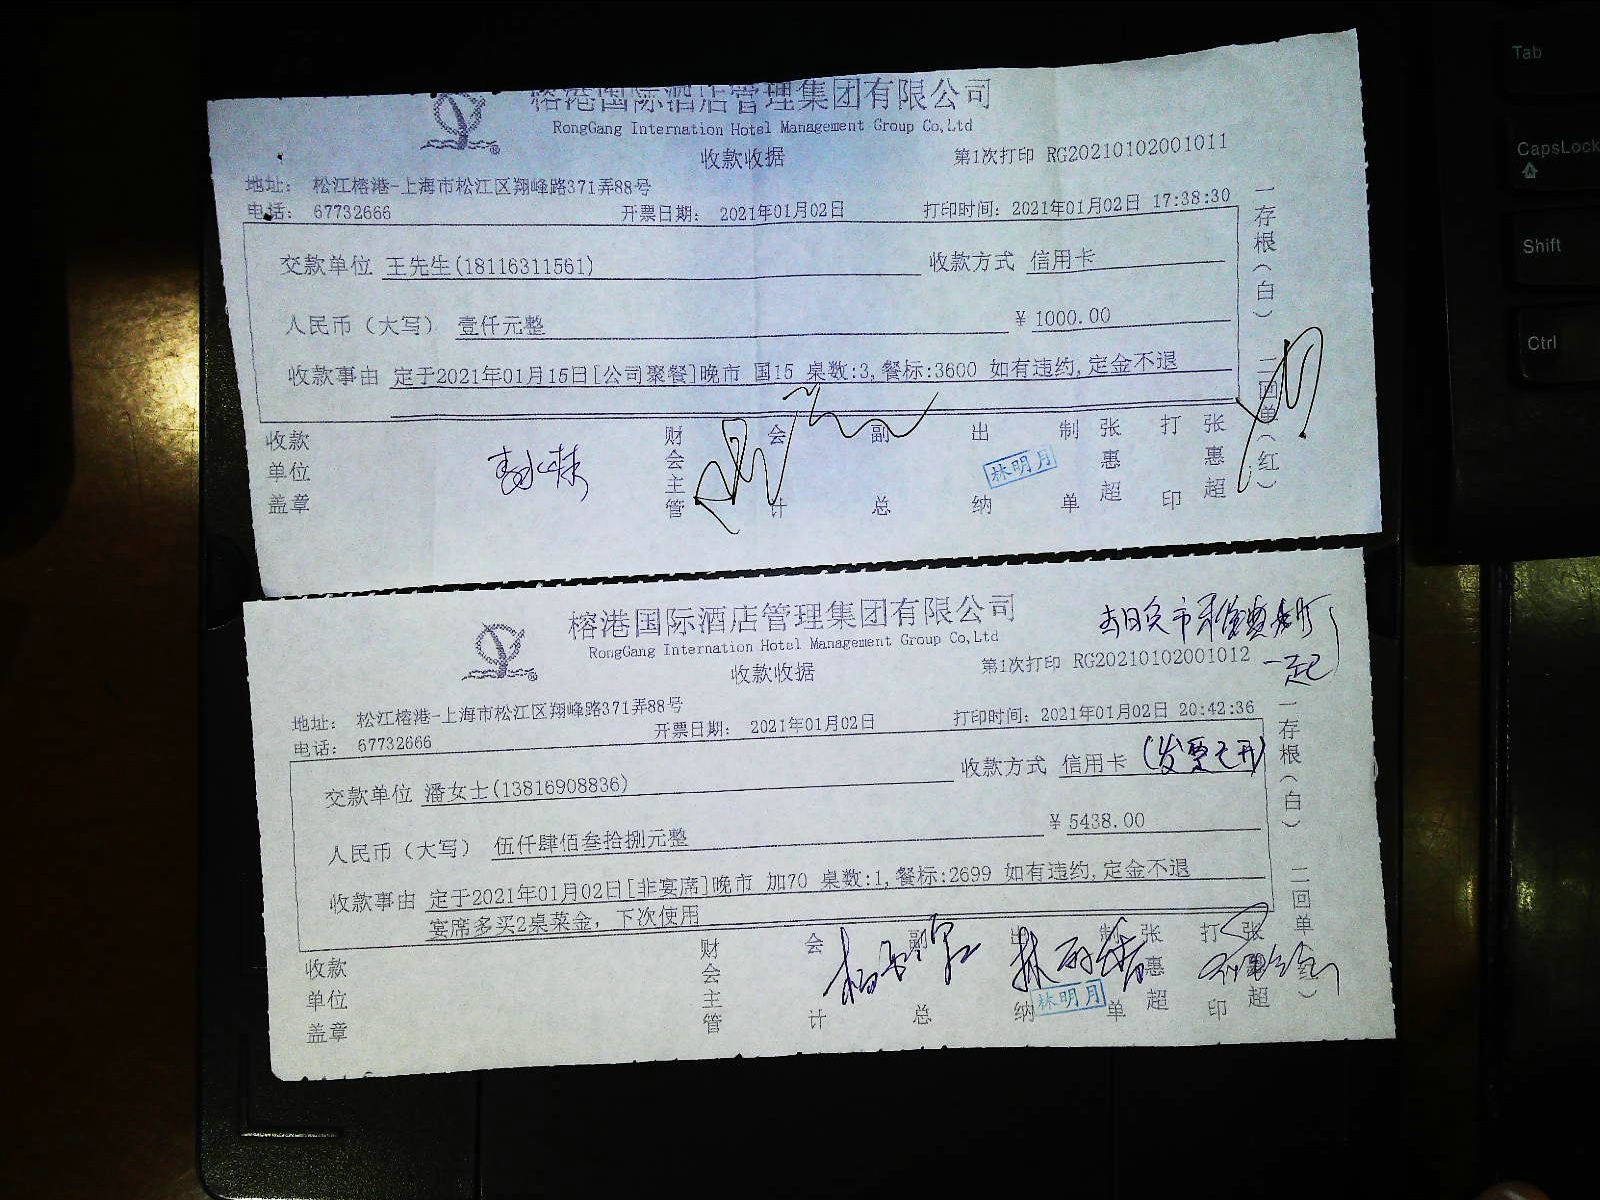 榕港国际酒店管理集团有限公司
RongGang Internation Hotel Management Group Co,Ltd
收款收据
第1次打印 RG20210102001011
地址： 松江榕港-上海市松江区翔峰路371弄88号
电话： 67732666 开票日期： 2021年01月02日 打印时间：2021年01月02日 17:38:30
交款单位 王先生(18116311561) 收款方式 信用卡
人民币（大写） 壹仟元整 ￥1000.00
收款事由 定于2021年01月15日[公司聚餐]晚市 国15 桌数:3,餐标:3600 如有违约,定金不退
收款单位盖章 财会主管 会计 副总 出纳 林明月 制单 张惠超 打印 张惠超
一存根（白） 二回单（红）
榕港国际酒店管理集团有限公司
RongGang Internation Hotel Management Group Co,Ltd
收款收据
第1次打印 RG20210102001012
一起
地址： 松江榕港-上海市松江区翔峰路371弄88号
电话： 67732666 开票日期： 2021年01月02日 打印时间：2021年01月02日 20:42:36
交款单位 潘女士(13816908836) 收款方式 信用卡 (发票已开)
人民币（大写） 伍仟肆佰叁拾捌元整 ￥5438.00
收款事由 定于2021年01月02日[非宴席]晚市 加70 桌数:1,餐标:2699 如有违约,定金不退
宴席多买2桌菜金，下次使用
收款单位盖章 财会主管 会计 副总 出纳 林明月 制单 张惠超 打印 张惠超
一存根（白） 二回单（红）
Tab
CapsLock
Shift
Ctrl